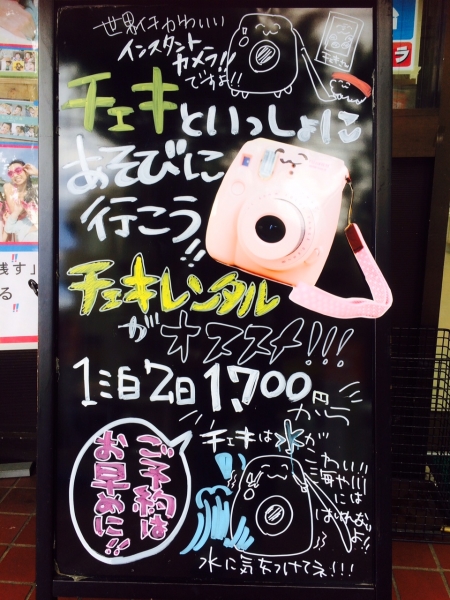 世界一かわいい
インスタント
カメラ!!
ですよ!!
チェキといっしょに
あそびに
行こう!!
チェキレンタル
がオススメ!!!
1泊2日 1,700円から
ご予約は
お早めに!!
チェキは水が
こわい!!
海や川
には
水に気をつけてネ!!!
残す」
る
ラ